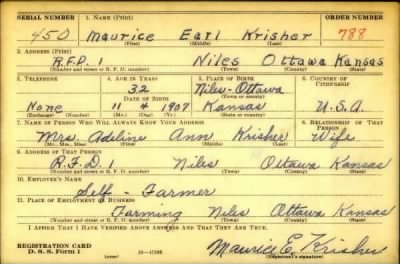 SERIAL NUMBER 1. NAME (Print) ORDER NUMBER
450 Maurice Earl Krisher 788
(First) (Middle) (Last)
2. ADDRESS (Print)
R.F.D. 1 Niles Ottawa Kansas
(Number and street or R. F. D. number) (Town) (County) (State)
3. TELEPHONE 4. AGE IN YEARS 5. PLACE OF BIRTH 6. COUNTRY OF CITIZENSHIP
32 Niles-Ottawa
DATE OF BIRTH (Town or county)
None 11 4 1907 Kansas U.S.A.
(Exchange) (Number) (Mo.) (Day) (Yr.) (State or country)
7. NAME OF PERSON WHO WILL ALWAYS KNOW YOUR ADDRESS 8. RELATIONSHIP OF THAT PERSON
Mrs. Adeline Ann Krisher Wife
(Mr., Mrs., Miss) (First) (Middle) (Last)
9. ADDRESS OF THAT PERSON
R.F.D. 1 Niles Ottawa Kansas
(Number and street or R. F. D. number) (Town) (County) (State)
10. EMPLOYER'S NAME
Self - Farmer
11. PLACE OF EMPLOYMENT OR BUSINESS
Farming Niles Ottawa Kansas
(Number and street or R. F. D. number) (Town) (County) (State)
I AFFIRM THAT I HAVE VERIFIED ABOVE ANSWERS AND THAT THEY ARE TRUE.
REGISTRATION CARD
D. S. S. Form 1 Maurice E. Krisher
(Registrant's signature)